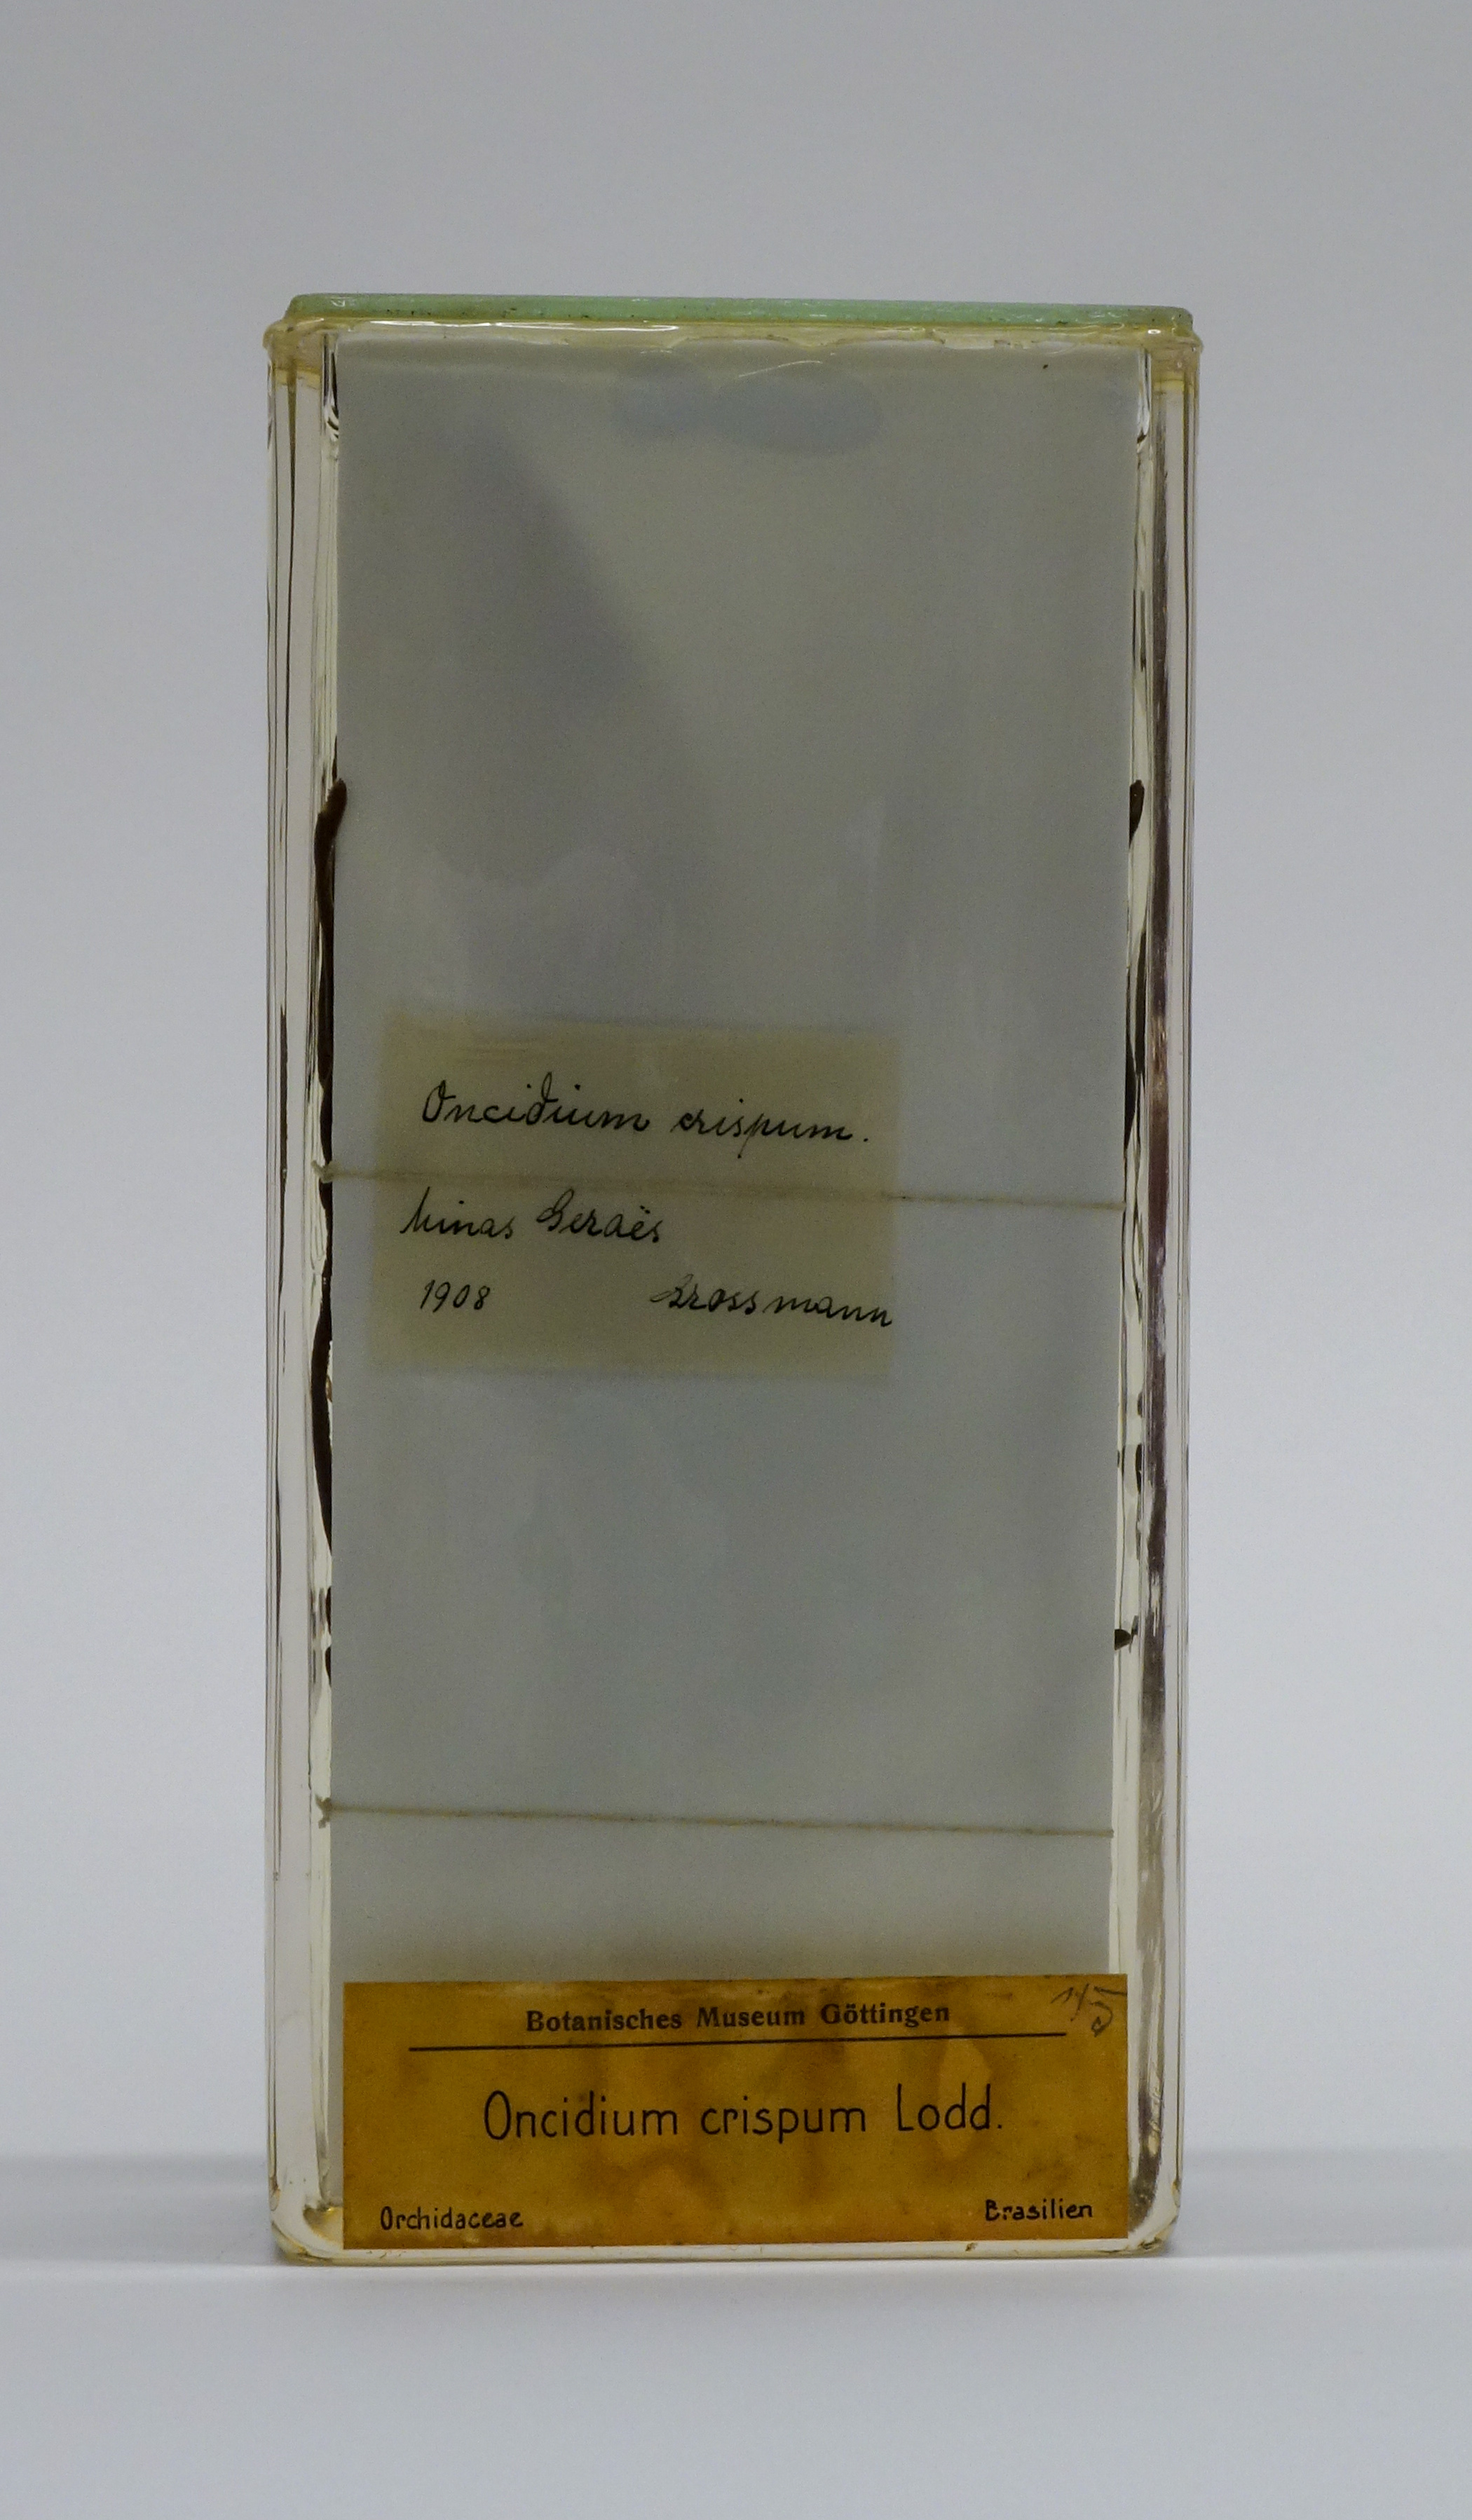 Oncidium crispum.
Minas Geraës
1908 Grossmann
Botanisches Museum Göttingen
Oncidium crispum Lodd.
Orchidaceae Brasilien